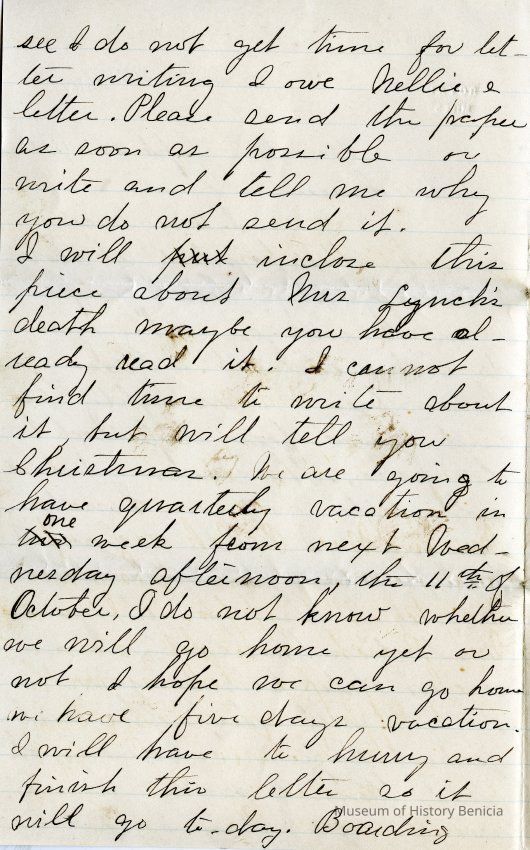 see I do not get time for let-
ter writing I owe Nellie a
letter. Please send the paper
as soon as possible or
write and tell me why
you do not send it.
I will put inclose this
piece about Mrs Lynch's
death maybe you have al-
ready read it. I cannot
find time to write about
it, but will tell you
Christmas. We are going to
have quarterly vacation in
one
two week from next Wed-
nesday afternoon, the 11th of
October, I do not know whether
we will go home yet or
not I hope we can go home
we have five days vacation.
I will have to hurry and
finish this letter so it
will go to-day. Boarding
Museum of History Benicia